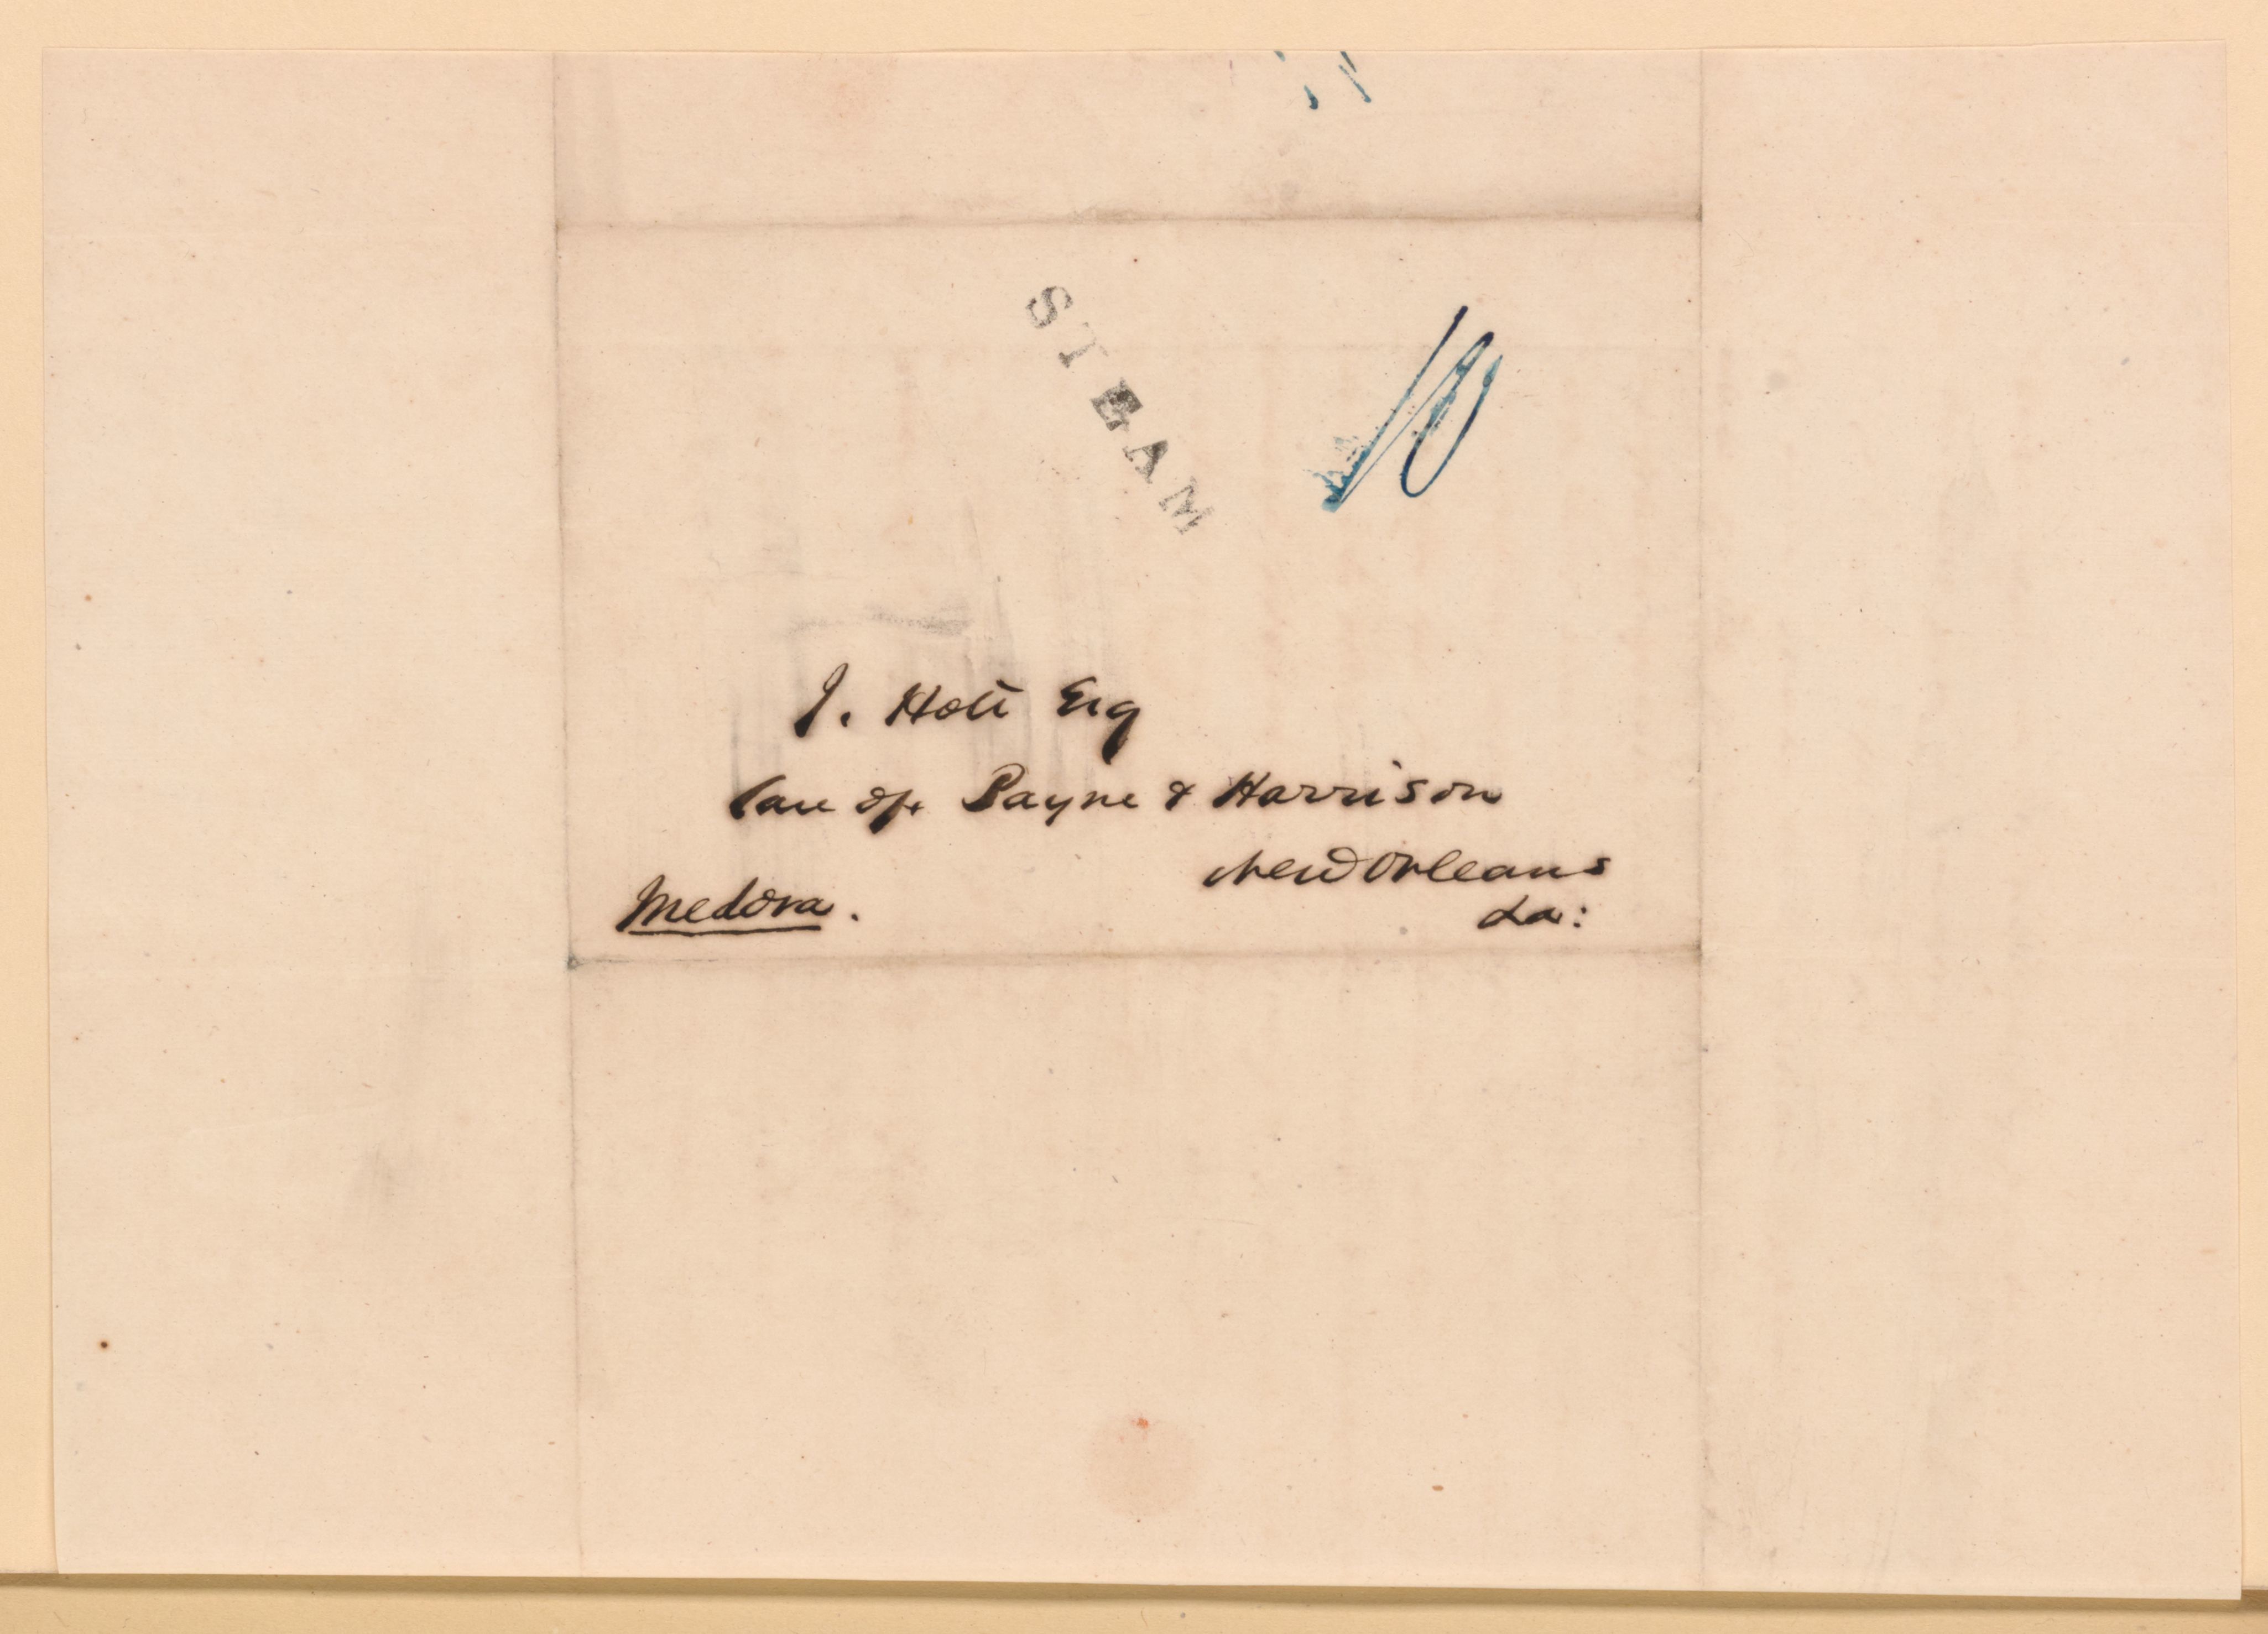 STEAM
10
J. Holt Esq
Care of Payne & Harrison
New Orleans
La:
Medora.